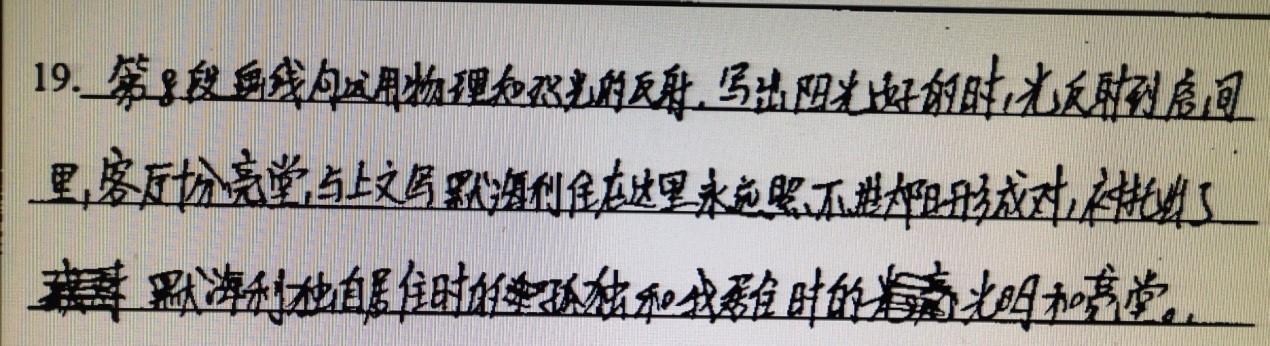 19. 第8段画线句运用物理知识光的反射，写出阳光好的时，光反射到房间
里，客厅十分亮堂，与上文写默海利住在这里永远照不进太阳形成对，衬托出了
默海利独自居住时的孤独和我居住时的光明和亮堂。